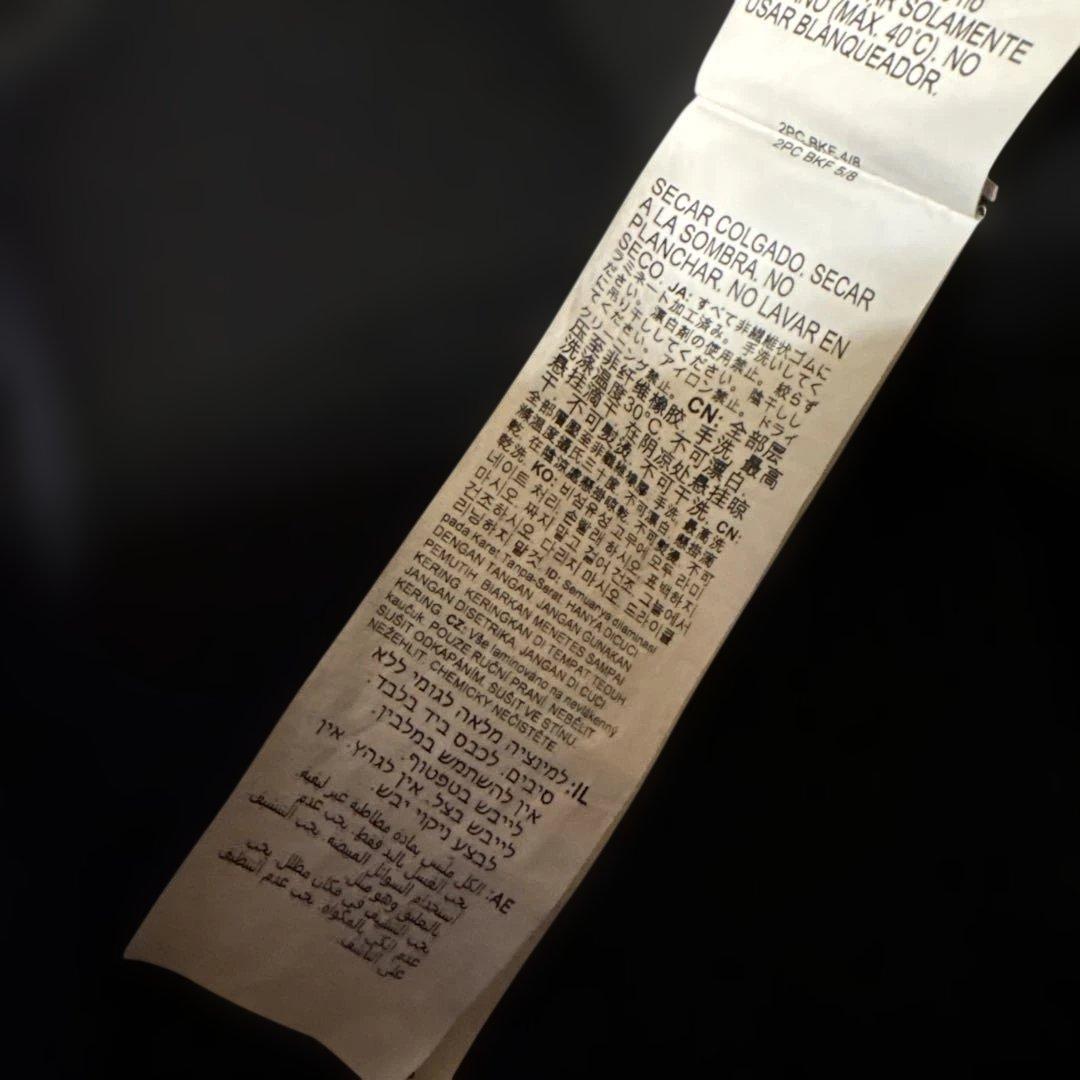 SOLAMENTE
(MÁX. 40°C). NO
USAR BLANQUEADOR.
2PC BKF 4/8
2PC BKF 5/8
SECAR COLGADO. SECAR
A LA SOMBRA. NO
PLANCHAR. NO LAVAR EN
SECO. JA: すべて非繊維状ゴムに
ラミネート加工済み。手洗いしてく
ださい。漂白剤の使用禁止。絞らず
に吊り干ししてください。陰干しし
てください。アイロン禁止。ドライ
クリーニング禁止。CN: 全部层
压至非纤维橡胶。手洗。最高
洗涤温度30°C。不可漂白。
悬挂滴干。在阴凉处悬挂晾
干。不可熨烫。不可干洗。CN:
全部層壓至非纖維橡膠。手洗。最高洗
滌溫度攝氏三十度。不可漂白。懸掛滴
乾。在陰涼處懸掛晾乾。不可熨燙。不可
乾洗。KO: 비섬유성 고무에 모두 라미
네이트 처리. 손빨래 하시오. 표백하지
마시오. 짜지 말고 걸어 건조. 그늘에서
건조하시오. 다리지 마시오. 드라이클
리닝하지 말 것. ID: Semuanya dilaminasi
pada Karet Tanpa-Serat. HANYA DICUCI
DENGAN TANGAN. JANGAN GUNAKAN
PEMUTIH. BIARKAN MENETES SAMPAI
KERING. KERINGKAN DI TEMPAT TEDUH.
JANGAN DISETRIKA. JANGAN DI CUCI
KERING. CZ: Vše laminováno na nevlákenný
kaučuk. POUZE RUČNÍ PRANÍ. NEBĚLIT.
SUŠIT ODKAPÁNÍM. SUŠIT VE STÍNU.
NEŽEHLIT. CHEMICKY NEČISTĚTE.
IL: למינציה מלאה לגומי ללא
סיבים. לכבס ביד בלבד.
אין להשתמש במלבין.
לייבש בטפטוף.
לייבש בצל. אין לגהץ. אין
לבצע ניקוי יבש.
AE: الكل ملبّس بمادة مطاطية غير ليفية.
يجب الغسل باليد فقط. يجب عدم
استخدام السوائل المبيضة. يجب التنشيف
بالتعليق وهو مبتل.
يجب التنشيف في مكان مظلل. يجب
عدم الكي بالمكواة. يجب عدم التنظيف
على الناشف.